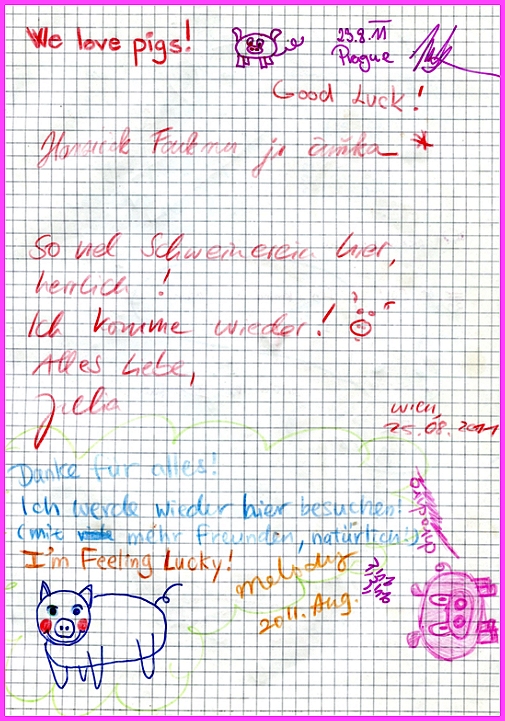 We love pigs!
23.8.11
Prague
Good Luck!
je čuňka
So viel Schweinerein hier,
herrlich!
Ich komme wieder!
Alles Liebe,
Julia
Wien,
25.08.2011
Danke für alles!
Ich werde wieder hier besuchen!
(mit mehr Freunden, natürlich!)
I'm Feeling Lucky!
melody
2011. Aug.